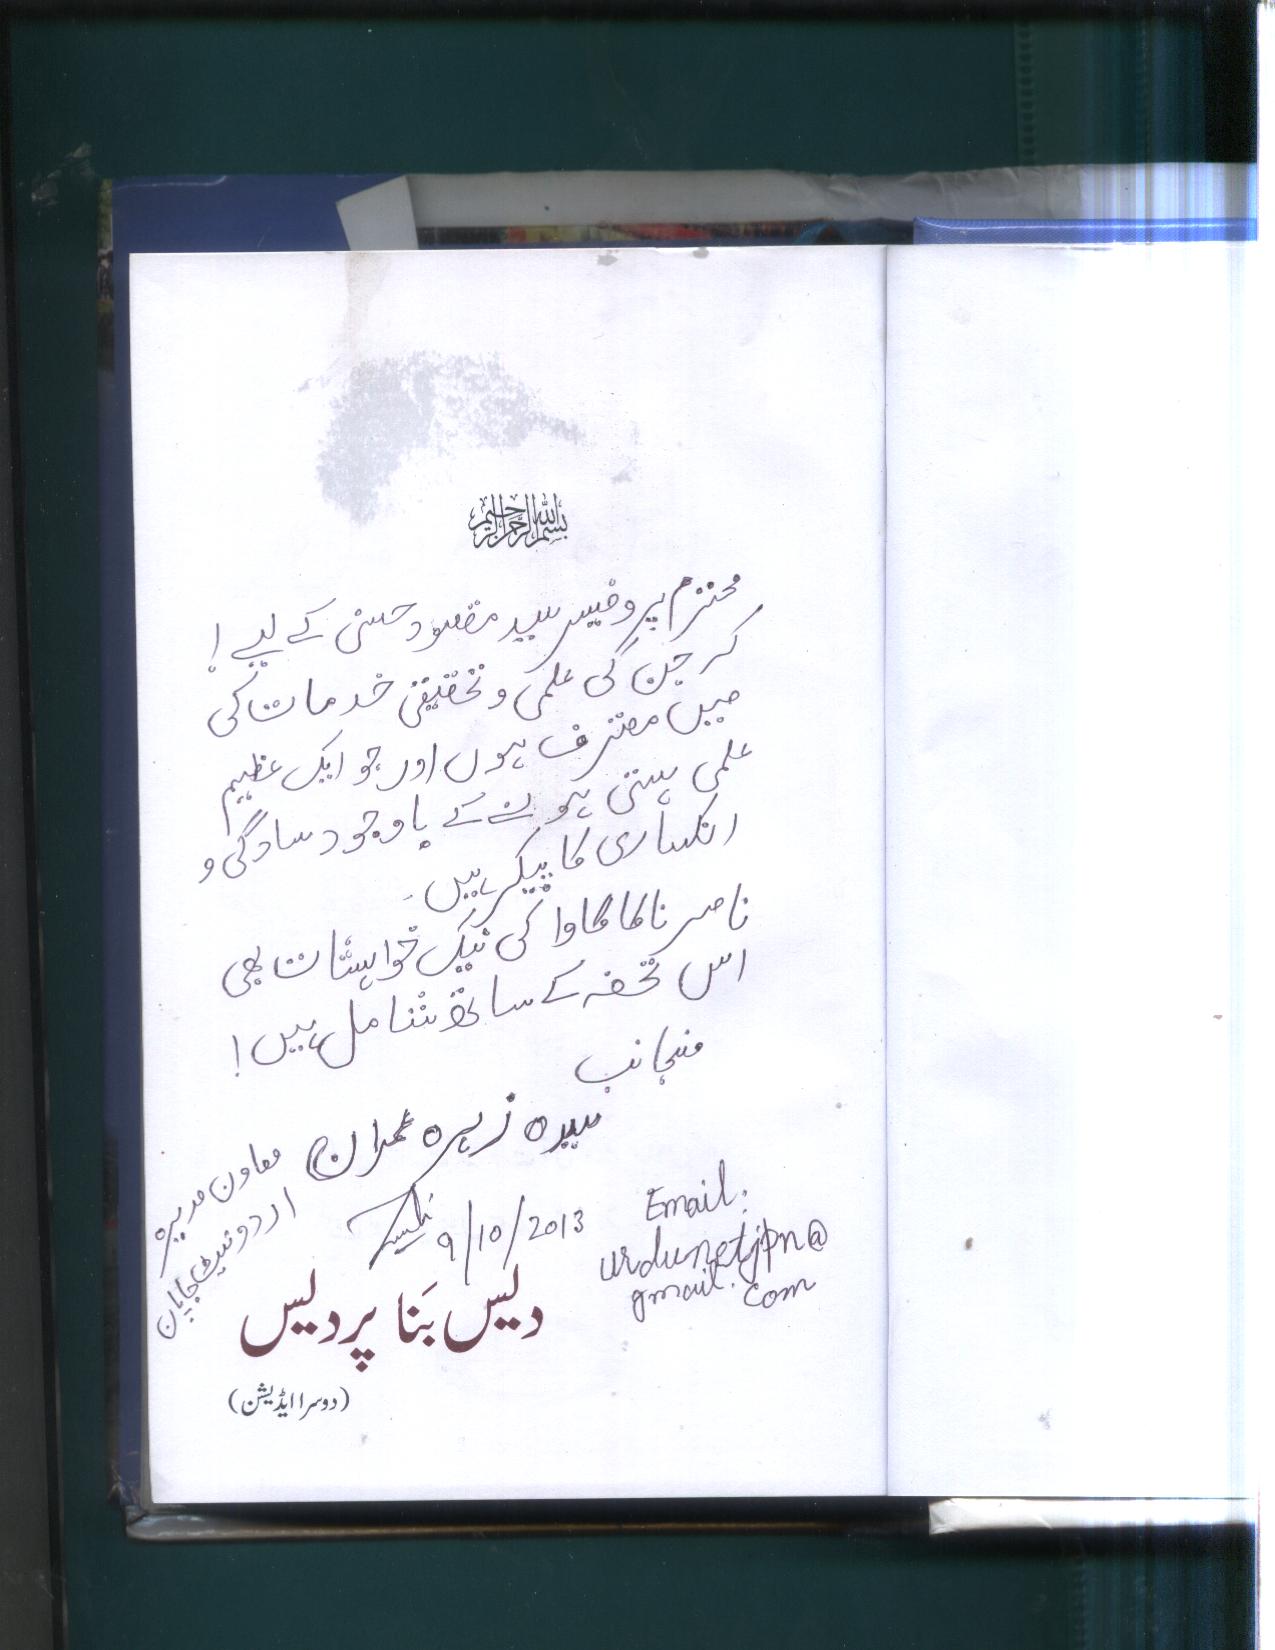 بسم اللہ الرحمن الرحیم
محترم پروفیسر سید مقصود حسنی کے لیے !
کہ جن کی علمی و تحقیقی خدمات کی
میں معترف ہوں اور جو ایک عظیم
علمی ہستی ہونے کے باوجود سادگی و
انکساری کا پیکر ہیں۔
ناصر ناکاگاوا کی نیک خواہشات بھی
اس تحفہ کے ساتھ شامل ہیں !
منجانب
سیدہ زہرہ عمران
معاون مدیرہ
اردو نیٹ جاپان
9/10/2013
Email:
urdunetjpn@
gmail.com
دیس بَنا پردیس
(دوسرا ایڈیشن)